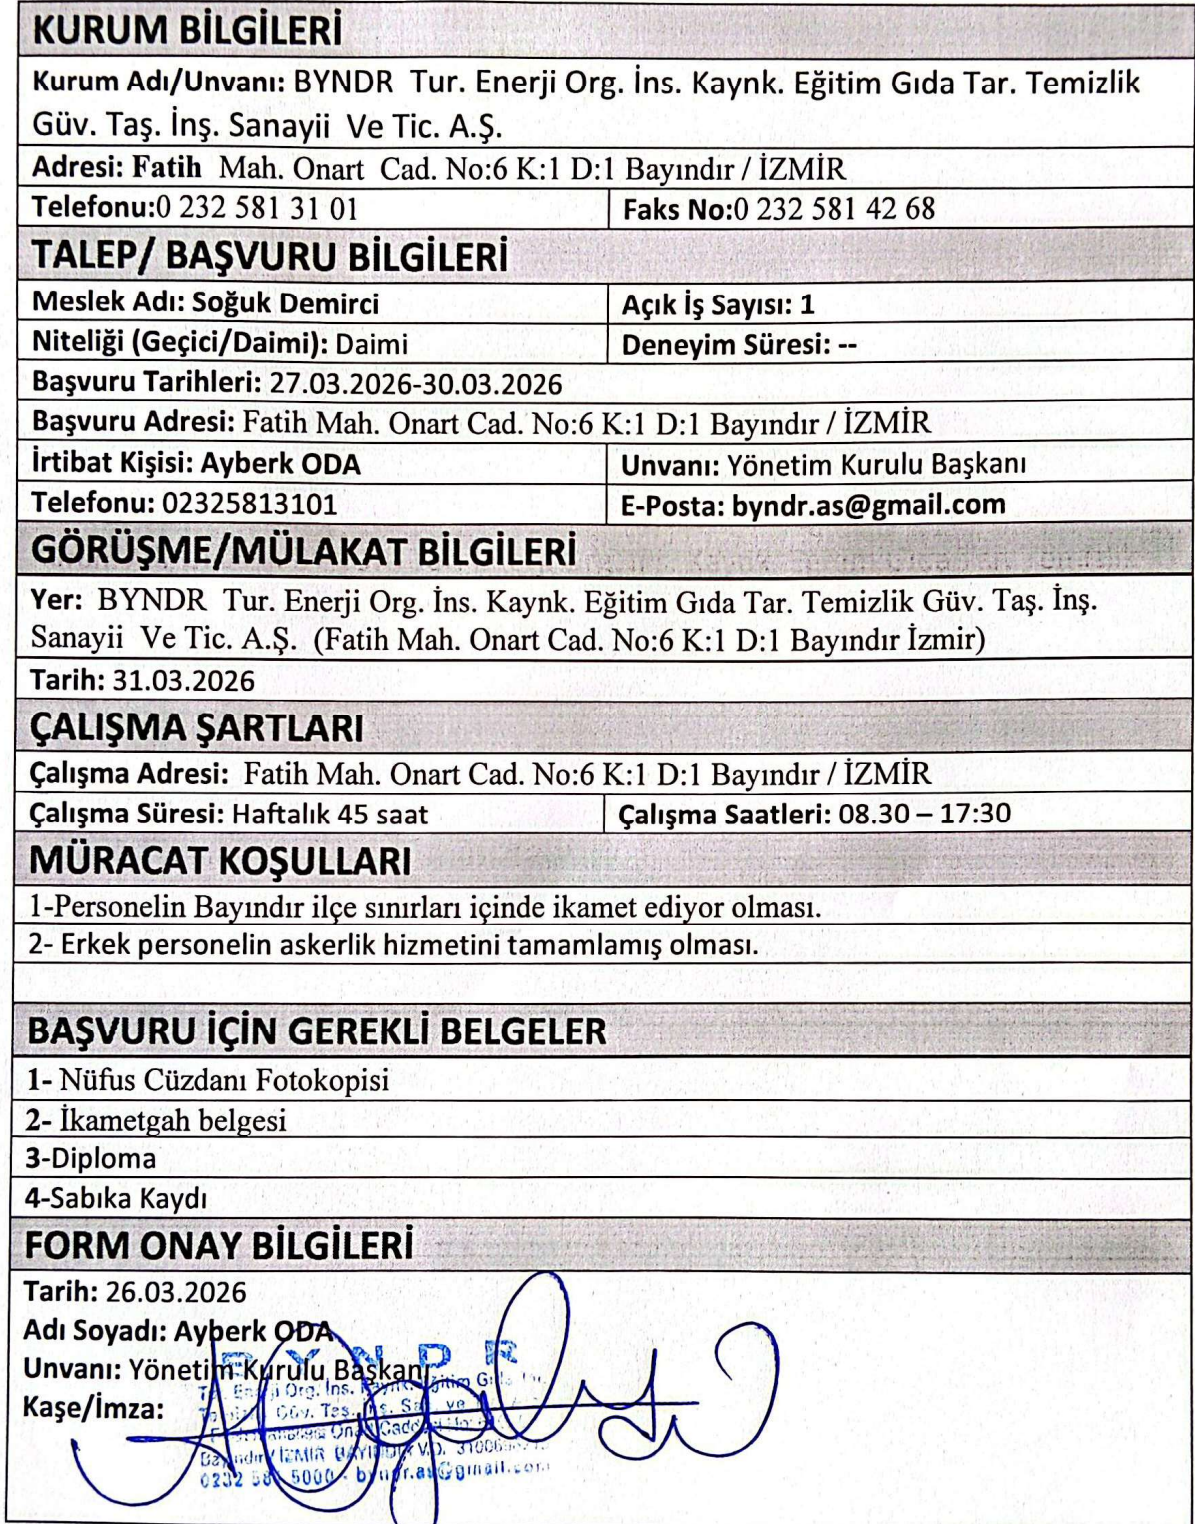 KURUM BİLGİLERİ
Kurum Adı/Unvanı: BYNDR Tur. Enerji Org. İns. Kaynk. Eğitim Gıda Tar. Temizlik
Güv. Taş. İnş. Sanayii Ve Tic. A.Ş.
Adresi: Fatih Mah. Onart Cad. No:6 K:1 D:1 Bayındır / İZMİR
Telefonu:0 232 581 31 01 Faks No:0 232 581 42 68
TALEP/ BAŞVURU BİLGİLERİ
Meslek Adı: Soğuk Demirci Açık İş Sayısı: 1
Niteliği (Geçici/Daimi): Daimi Deneyim Süresi: --
Başvuru Tarihleri: 27.03.2026-30.03.2026
Başvuru Adresi: Fatih Mah. Onart Cad. No:6 K:1 D:1 Bayındır / İZMİR
İrtibat Kişisi: Ayberk ODA Unvanı: Yönetim Kurulu Başkanı
Telefonu: 02325813101 E-Posta: byndr.as@gmail.com
GÖRÜŞME/MÜLAKAT BİLGİLERİ
Yer: BYNDR Tur. Enerji Org. İns. Kaynk. Eğitim Gıda Tar. Temizlik Güv. Taş. İnş.
Sanayii Ve Tic. A.Ş. (Fatih Mah. Onart Cad. No:6 K:1 D:1 Bayındır İzmir)
Tarih: 31.03.2026
ÇALIŞMA ŞARTLARI
Çalışma Adresi: Fatih Mah. Onart Cad. No:6 K:1 D:1 Bayındır / İZMİR
Çalışma Süresi: Haftalık 45 saat Çalışma Saatleri: 08.30 – 17:30
MÜRACAT KOŞULLARI
1-Personelin Bayındır ilçe sınırları içinde ikamet ediyor olması.
2- Erkek personelin askerlik hizmetini tamamlamış olması.
BAŞVURU İÇİN GEREKLİ BELGELER
1- Nüfus Cüzdanı Fotokopisi
2- İkametgah belgesi
3-Diploma
4-Sabıka Kaydı
FORM ONAY BİLGİLERİ
Tarih: 26.03.2026
Adı Soyadı: Ayberk ODA
Unvanı: Yönetim Kurulu Başkanı
Kaşe/İmza:
BYNDR
Org. İns. Kaynk. Eğitim
Güv. Taş. İnş.
Bayındır/İZMİR BAYINDIR V.D.
0232 5000 - byndr.as@gmail.com